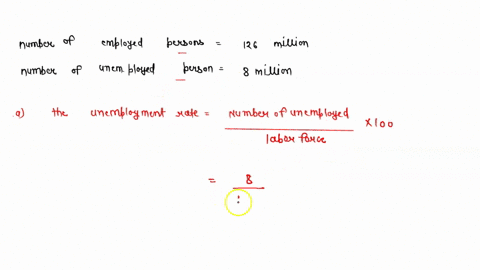 number of employed persons = 126 million
number of unemployed person = 8 million
a) the unemployment rate = Number of unemployed / labor force × 100
= 8 /